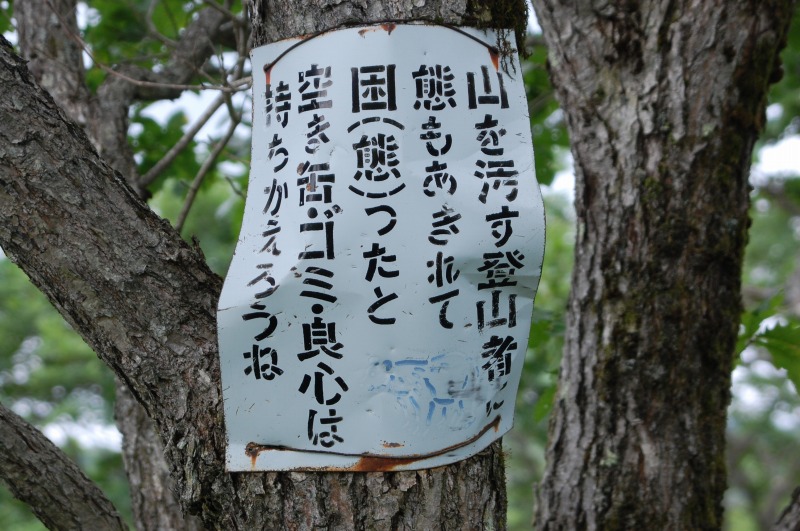 山を汚す登山者に
態もあきれて
困(態)つたと
空き缶・ゴミ・良心は
持ちかえろうね